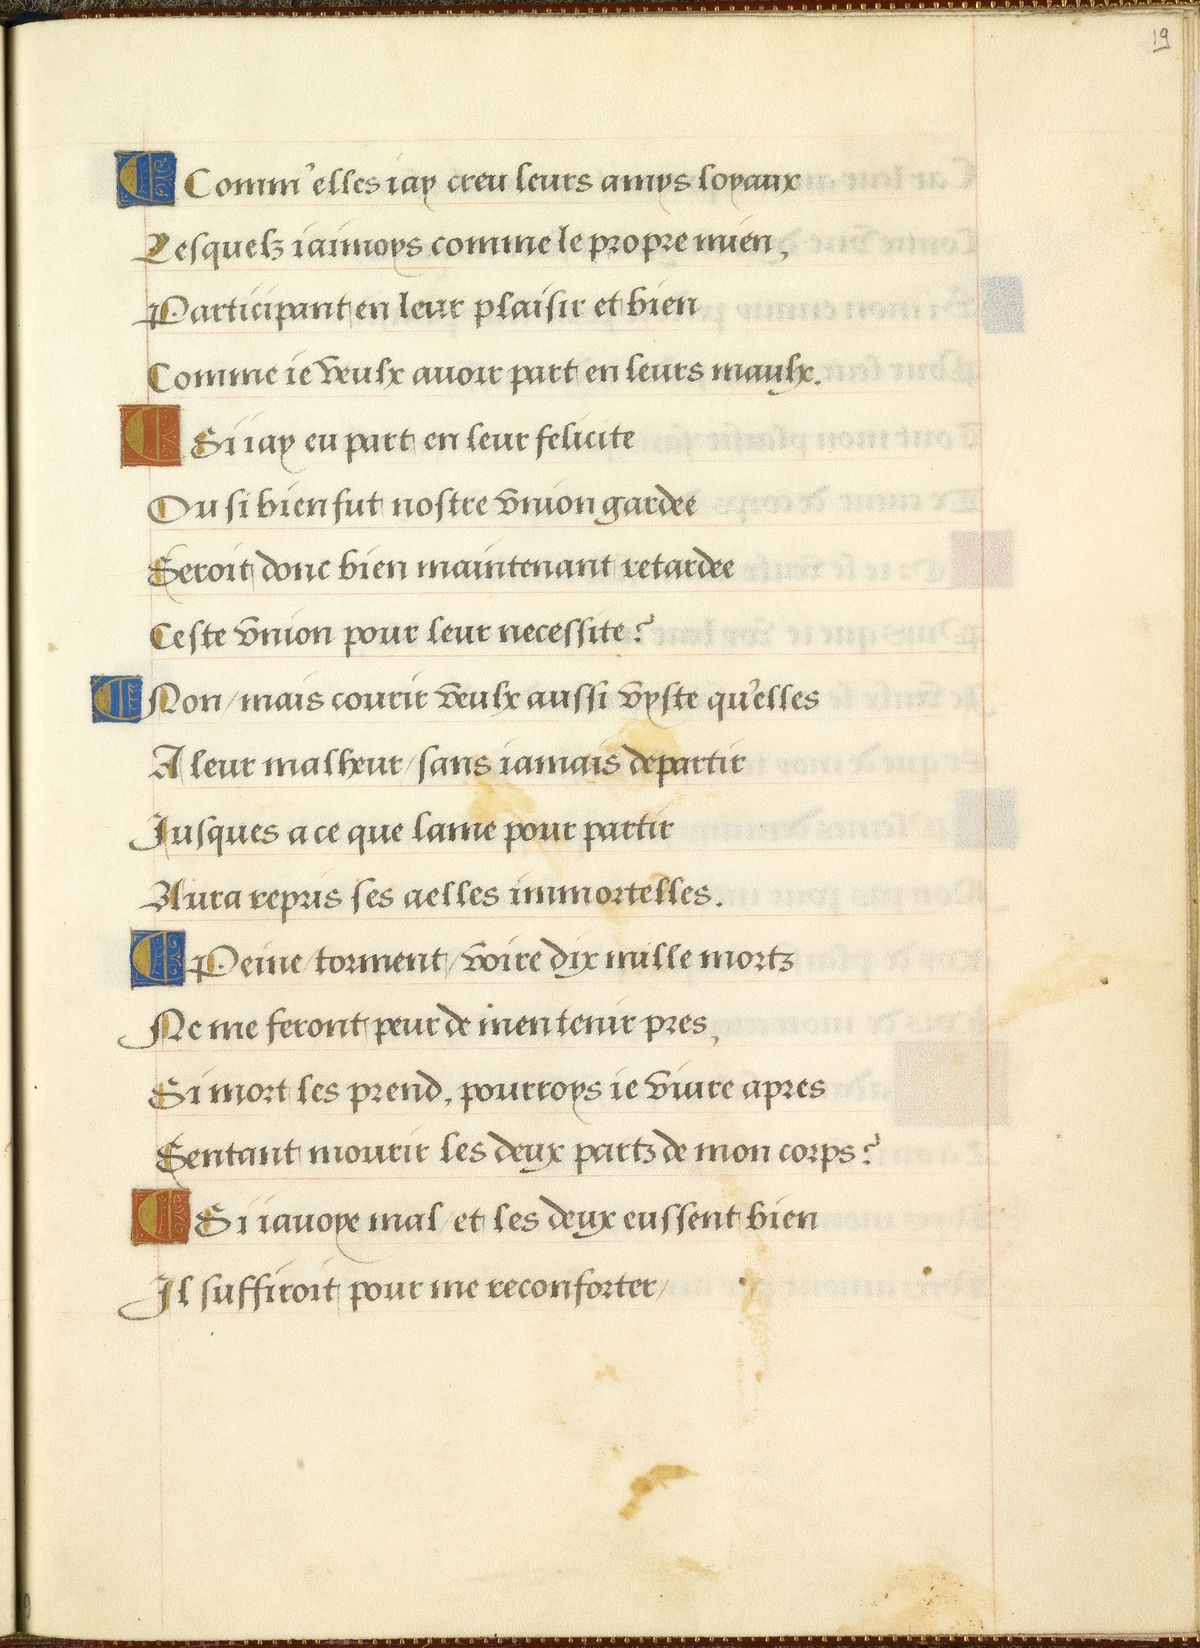 19
Comm'elles iay creu leurs amys loyaux
Lesquelz iaimoys comme le propre mien,
Participant en leur plaisir et bien
Comme ie veulx auoir part en leurs maulx.
Si iay eu part en leur felicite
Ou si bien fut nostre vnion gardee
Seroit donc bien maintenant retardee
Ceste vnion pour leur necessite?
Non/mais courir veulx aussi vyste qu'elles
A leur malheur/sans iamais departir
Iusques a ce que lame pour partir
Aura repris ses aelles immortelles.
Peine/torment/voire dix mille mortz
Ne me feront peur de men tenir pres,
Si mort les prend, pourroys ie viure apres
Sentant mourir les deux partz de mon corps?
Si iauoye mal/et les deux eussent bien
Il suffiroit pour me reconforter/